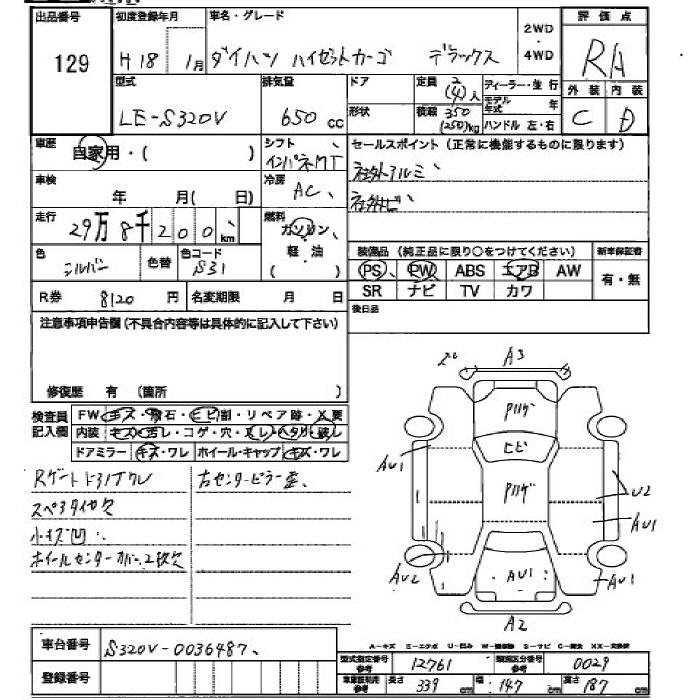 出品番号 初度登録年月 車名・グレード 2WD ・ 4WD 評価点
129 H18 1月 ダイハツ ハイゼットカーゴ デラックス RA
型式 排気量 ドア 定員 2(4)人 ディーラー・並行 外装 内装
LE-S320V 650cc 形状 積載 350(250)kg モデル年式 年 ハンドル 左・右 C D
車歴 自家用・( ) シフト インパネAT セールスポイント(正常に機能するものに限ります)
車検 年 月( 日) 冷房 AC、 社外アルミ、
社外ナビ、
走行 29万8千200、km 燃料 ガソリン、 軽・油 ( )
色 シルバー 色替 色コード S31
装備品(純正品に限り○をつけてください) 新車保証書
PS、 PW ABS エアB AW 有・無
SR ナビ TV カワ
R券 8120円 名変期限 月 日 後日品
注意事項申告欄(不具合内容等は具体的に記入して下さい)
修復歴 有 (箇所 )
検査員記入欄 FW キズ・飛石・ヒビ割・リペア跡・X要
内装 キズ・汚れ・コゲ・穴・スレ・ヘタリ・破レ
ドアミラー キズ・ワレ ホイール・キャップ キズ・ワレ
Rゲート 右センターピラー歪、
スペアタイヤ欠
小キズ凹、
ホイールセンターカバー、2枚欠
A3
PリリゲP
ヒビ
AU1
U2
AU1
AU2 AU1 AU1
A2
A-キズ E-エクボ U-凹み W-補修跡 S-サビ C-腐食 XX-交換済
車台番号 S320V-0036487、
登録番号
型式指定番号 参考 12761 類別区分番号 参考 0029
車庫証明用 参考 長さ 339cm 幅 147cm 高さ 187cm